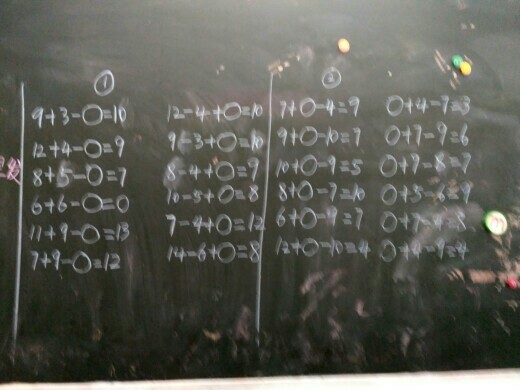 ①
9+3-○=10
12+4-○=9
8+5-○=7
6+6-○=0
11+9-○=13
7+9-○=12
12-4+○=10
9-3+○=10
8-4+○=9
10-5+○=8
7-4+○=12
14-6+○=8
②
7+○-4=9
9+○-10=7
10+○-9=5
8+○-7=10
6+○-9=7
12+○-10=4
○+4-7=3
○+7-9=6
○+9-8=7
○+5-6=9
○+7-9=8
○+4-9=4